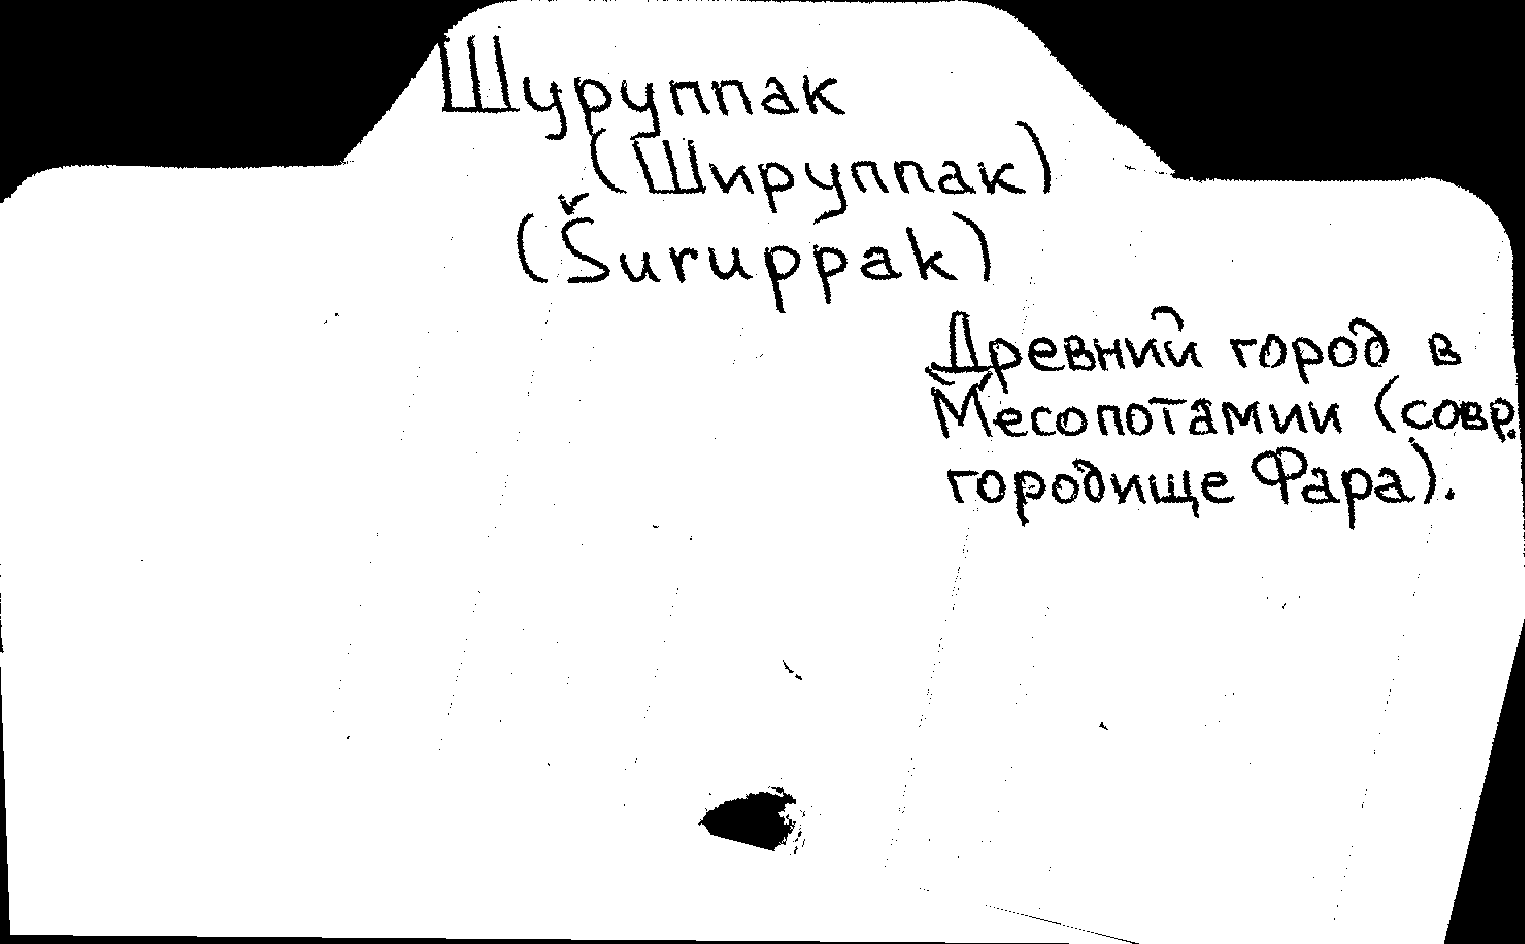 Шуруппак
(Шируппак)
(Šuruppak)
Древний город в
Месопотамии (совр.
городище Фара).